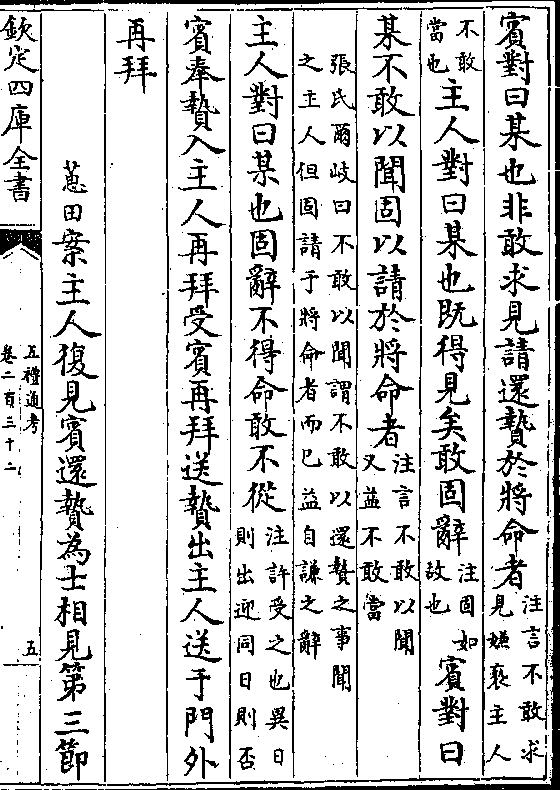 賓對曰某也非敢求見請還贄於將命者注言不敢求
見嫌褻主人
不敢
當也主人對曰某也既得見矣敢固辭注固如
故也賓對曰
某不敢以聞固以請於將命者注言不敢以聞
又益不敢當
張氏爾岐曰不敢以聞謂不敢以還贄之事聞
之主人但固請于將命者而已益自謙之辭
主人對曰某也固辭不得命敢不從注許受之也異日
則出迎同日則否
賓奉贄入主人再拜受賓再拜送贄出主人送于門外
再拜
蕙田案主人復見賓還贄為士相見第三節
欽定四庫全書
五禮通考
卷二百三十二
五